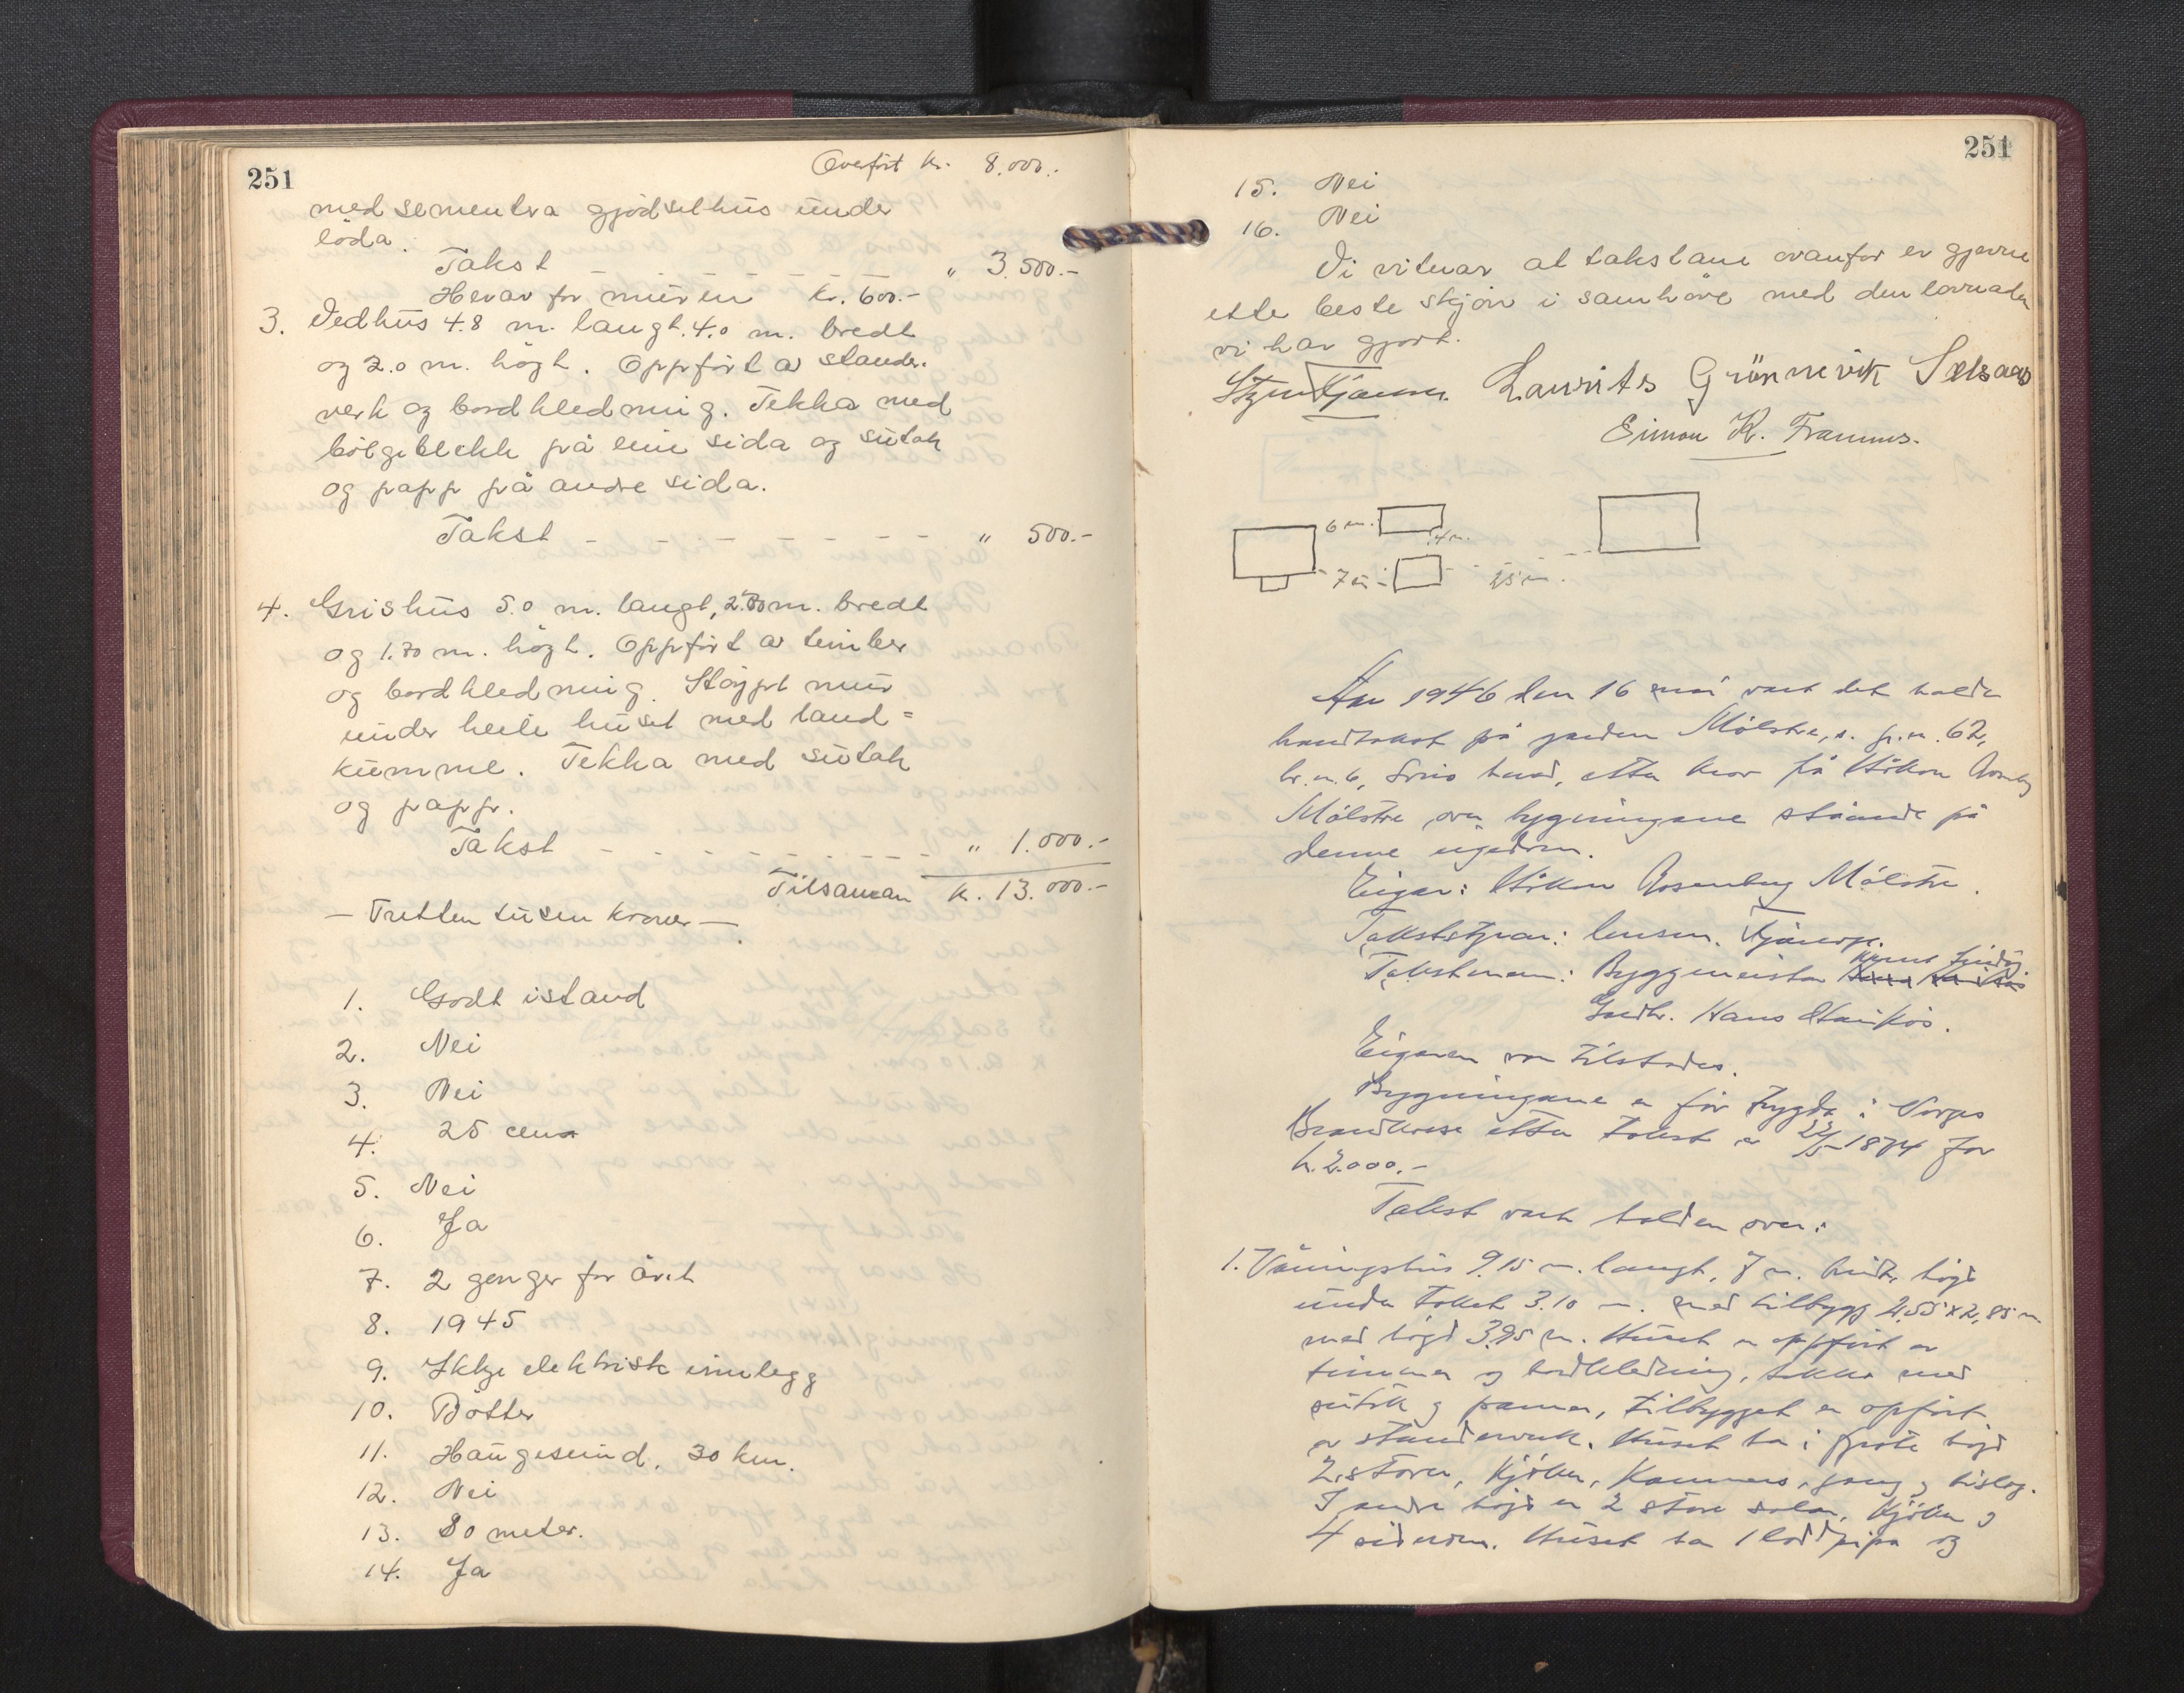 251
Overført kr. 8.000.-
med sementra gjødselhus under
löda.
Takst - - - - - - - " 3.500.-
Herav for muren kr. 600.-
3. Vedhus 4.8 m. langt. 4.0 m. bredt
og 2.0 m. högt. Oppfört av stender-
verk og bordkledning. Tekka med
bölgeblekk på eine sida og sutak
og papp på andre sida.
Takst - - - - - - - " 500.-
4. Grishus 5.0 m. langt, 2.70 m. bredt
og 1.70 m. högt. Oppfört av timber
og bordkledning. Støypt mur
under heile huset med land=
kumme. Tekka med sutak
og papp.
Takst - - - - - - - - - " 1.000.-
Tilsaman kr. 13.000.-
- Tretten tusen kroner -
1. Godt istand
2. Nei
3. Nei
4. 25 cm
5. Nei
6. Ja
7. 2 genger for året
8. 1945
9. Ikkje elektrisk innlegg
10. Bötter
11. Haugesund, 30 km.
12. Nei
13. 80 meter.
14. Ja
251
15. Nei
16. Nei
Vi vitnar at takstane ovanfor er gjevne
ette beste skjön i samhöve med den lovnaden
vi har gjort.
Laurits Grönnevik
Simon K.
6 m.
4 m.
7 m.
25 m.
År 1946 den 16 mai vart det halde
brandtakst på garden Mølstre, g.n. 62,
br.n. 6, herad, etter krav frå Håkon
Mølstre over bygningane ståande på
denne eigedom.
Eigar: Håkon Rosenberg Mølstre.
Takststyrar: lensm.
Takstmenn: Byggmeister
Gardbr. Hans
Eigaren var tilstades.
Bygningane er för trygda i Norges
Brandkasse etter takst av 22/5-1874 for
kr. 2.000.-
Takst vart halden over:
1. Våningshus 9.15 m. langt, 7 m. breidt, högd
under taket 3.10 m. med tilbygg 2,55 x 2,85 m.
med högd 3.95 m. Huset er oppfört av
timmer og bordkledning, tekka med
sutak og panner, tilbygget er oppfört
av standerverk. Huset har i fyrste högd
2 stover, kjöken, kammers, gang og bislag.
I andre högd er 2 store salar, kjöken og
4 siderom. Huset har 1 lodd pipa og